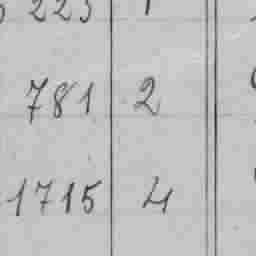 223 1
781 2
1715 4